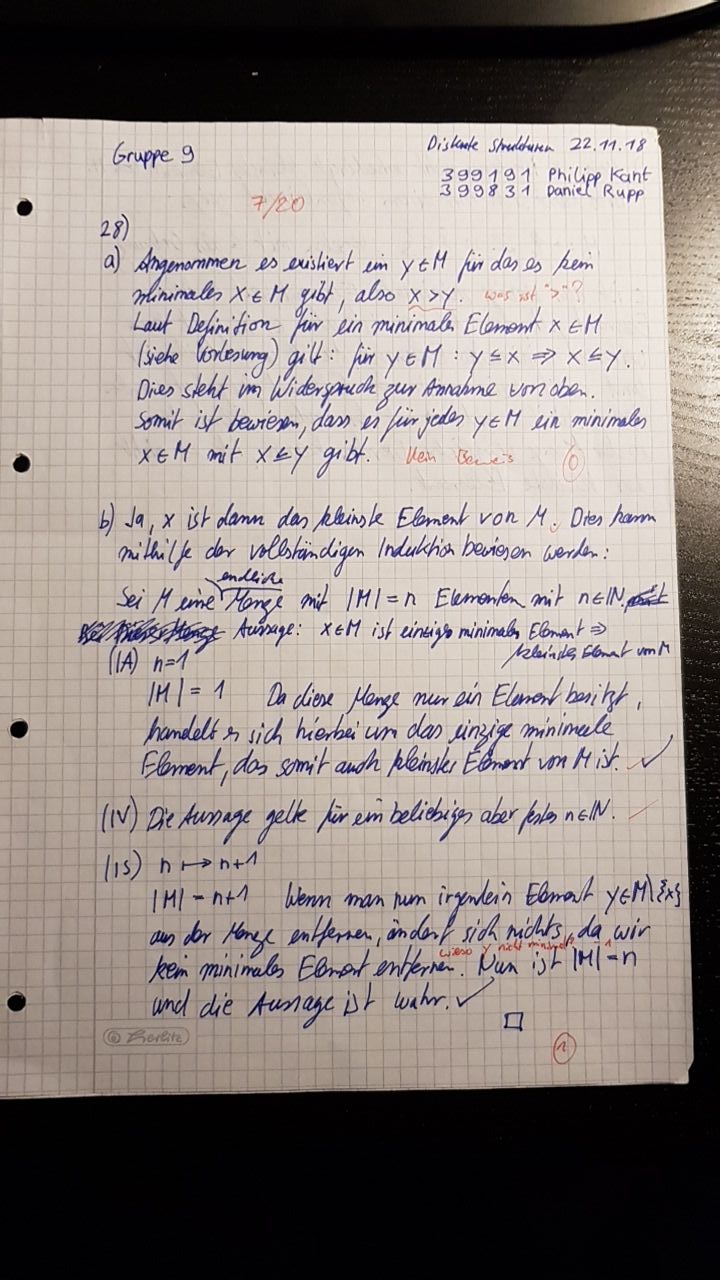 Gruppe 9
Diskrete Strukturen 22.11.18
399191 Philipp Kant
399831 Daniel Rupp
7/20
28)
a) Angenommen es existiert ein y∈M für das es kein
minimales x∈M gibt, also x>y. was ist ">"?
Laut Definition für ein minimales Element x∈M
(siehe Vorlesung) gilt: für y∈M : y≤x ⇒ x≤y.
Dies steht im Widerspruch zur Annahme von oben.
Somit ist bewiesen, dass es für jedes y∈M ein minimales
x∈M mit x≤y gibt. kein Beweis 0
b) Ja, x ist dann das kleinste Element von M. Dies kann
mithilfe der vollständigen Induktion bewiesen werden:
endliche
Sei M eine Menge mit |M|=n Elementen mit n∈ℕ
Aussage: x∈M ist einziges minimales Element ⇒
kleinstes Element von M
(IA) n=1
|M|=1 Da diese Menge nur ein Element besitzt,
handelt es sich hierbei um das einzige minimale
Element, das somit auch kleinstes Element von M ist. ✓
(IV) Die Aussage gelte für ein beliebiges aber festes n∈ℕ.
(IS) n ↦ n+1
|M|=n+1 Wenn man nun irgendein Element y∈M\{x}
aus der Menge entfernen, ändert sich nichts, da wir
wieso y nicht minimal?
kein minimales Element entfernen. Nun ist |M|=n
und die Aussage ist wahr. ✓
□
1